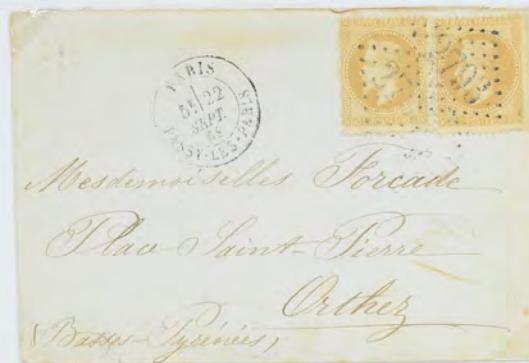 PARIS
5E 22
SEPT.
68
PASSY-LES-PARIS
Mesdemoiselles Forcade
Place Saint-Pierre
Orthez
(Basses-Pyrénées)